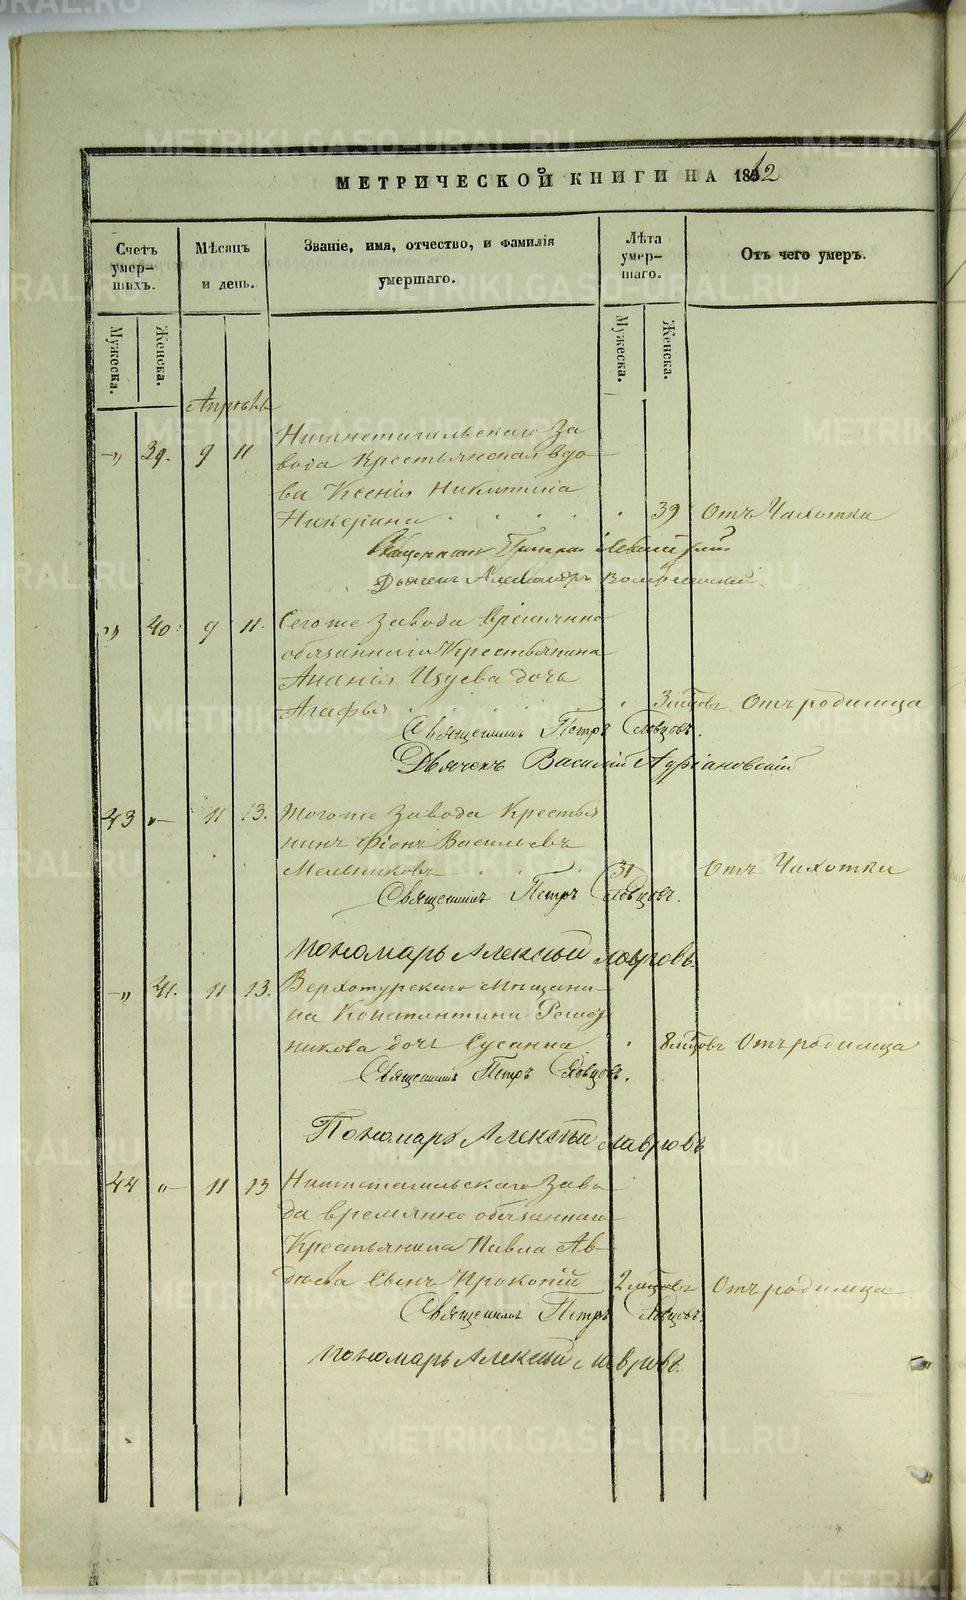 МЕТРИЧЕСКОЙ КНИГИ НА 1862
Счетъ умер-шихъ.
Мѣсяцъ и день.
Званіе, имя, отчество, и фамилія умершаго.
Лѣта умер-шаго.
Отъ чего умеръ.
Мужеска.
Женска.
Мужеска.
Женска.
Апрѣль
„ 39. 9 11 Нижнетагильскаго За
вода Крестьянская вдо
ва Ксенія Никитина
39 Отъ Чахотки
Священникъ
Дьячекъ Александръ
„ 40. 9 11. Сегоже Завода Временно
обязаннаго Крестьянина
Ананія дочь
Агафья 3 мѣсцовъ Отъ родимца
Священникъ Петръ Словцовъ.
Дьячекъ Василій Адріановскій
43 „ 11 13. Тогоже Завода Крестья
нинъ Фіонъ Васильевъ
Мельниковъ 31 Отъ Чахотки
Священникъ Петръ Словцовъ.
Пономарь Алексѣй Лавровъ.
„ 41. 11 13. Верхотурскаго Мѣщани
на Константина Решет
никова дочь Сусанна 8 мѣсцовъ Отъ родимца
Священникъ Петръ Словцовъ.
Пономарь Алексѣй Лавровъ
44 „ 11 13 Нижнетагильскаго Заво
да временно обязаннаго
Крестьянина Павла Ав
дѣева Сынъ Прокопій 2 мѣсцовъ Отъ родимца
Священникъ Петръ Словцовъ.
Пономарь Алексѣй Лавровъ.
METRIKI.GASO-URAL.RU